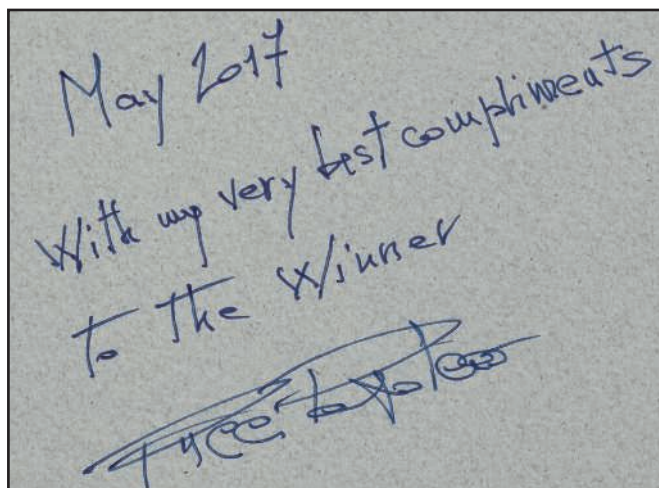 May 2017
With my very best compliments
To The Winner